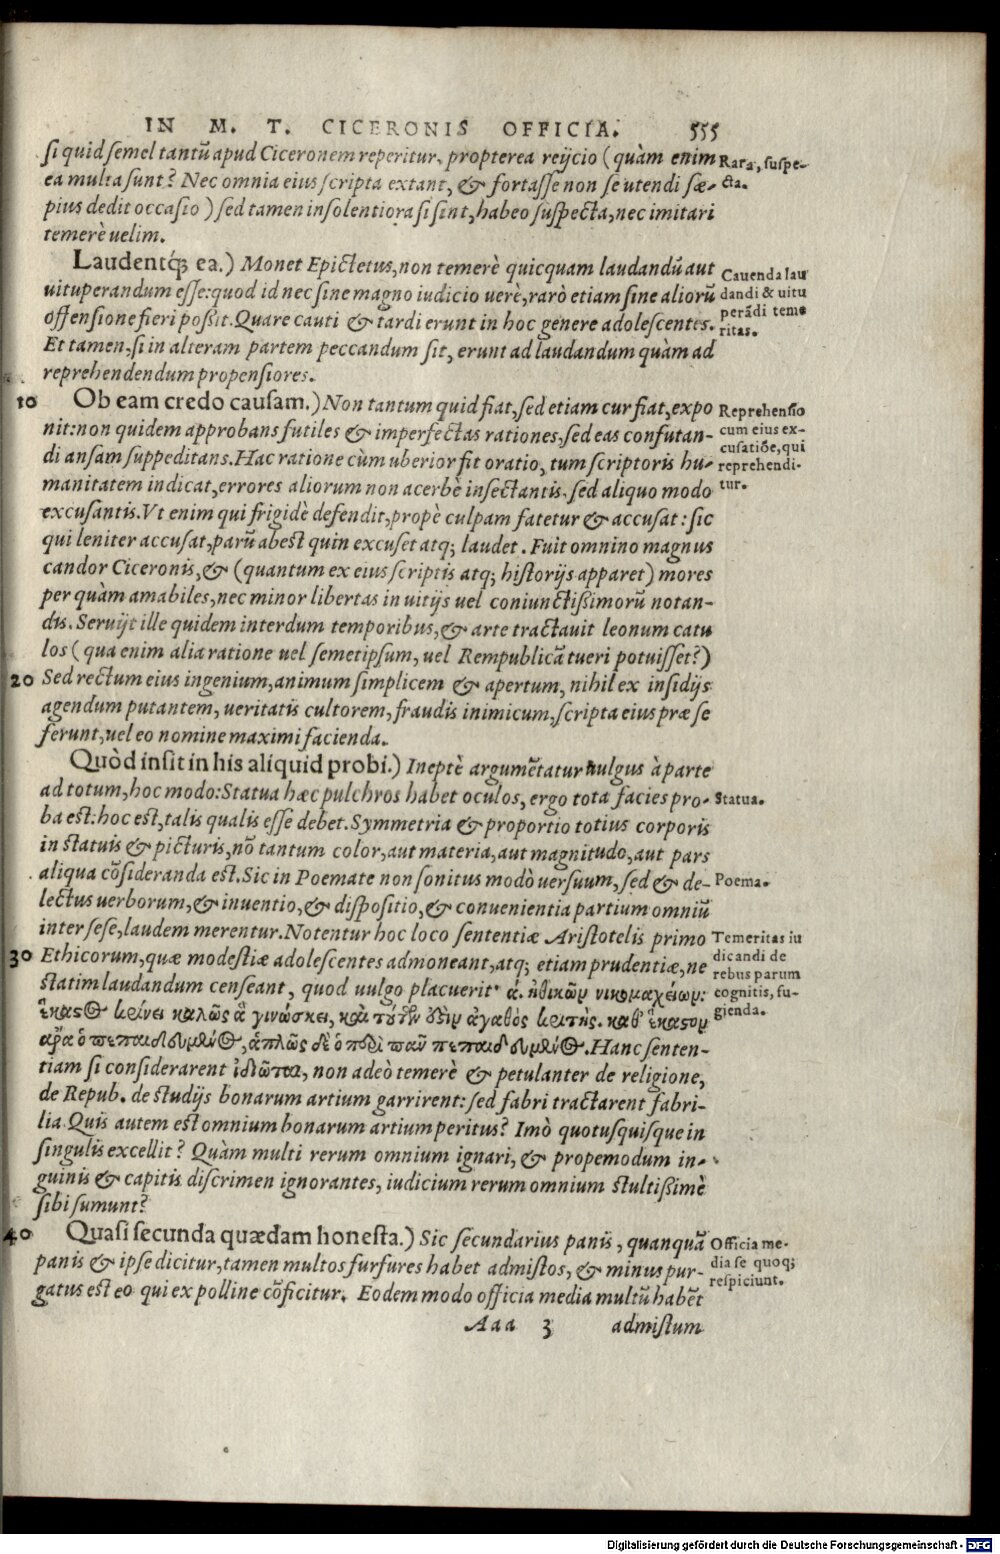 IN M. T. CICERONIS OFFICIA. 555
si quid semel tantũ apud Ciceronem reperitur, propterea reijcio (quàm enim
ea multa sunt? Nec omnia eius scripta extant, & fortasse non se utendi sæ-
pius dedit occasio) sed tamen insolentiora si sint, habeo suspecta, nec imitari
temerè uelim.
Rara, suspe-
cta.
Laudentq́; ea.) Monet Epictetus, non temerè quicquam laudandũ aut
uituperandum esse: quod id nec sine magno iudicio uerè, rarò etiam sine aliorũ
offensione fieri possit. Quare cauti & tardi erunt in hoc genere adolescentes.
Et tamen, si in alteram partem peccandum sit, erunt ad laudandum quàm ad
reprehendendum propensiores.
Cauenda lau
dandi & uitu
perãdi teme
ritas.
10 Ob eam credo causam.) Non tantum quid fiat, sed etiam cur fiat, expo
nit: non quidem approbans futiles & imperfectas rationes, sed eas confutan-
di ansam suppeditans. Hac ratione cùm uberior fit oratio, tum scriptoris hu-
manitatem indicat, errores aliorum non acerbè insectantis, sed aliquo modo
excusantis. Vt enim qui frigidè defendit, propè culpam fatetur & accusat: sic
qui leniter accusat, parũ abest quin excuset atq; laudet. Fuit omnino magnus
candor Ciceronis, & (quantum ex eius scriptis atq; historijs apparet) mores
per quàm amabiles, nec minor libertas in uitijs uel coniunctissimorũ notan-
dis. Seruijt ille quidem interdum temporibus, & arte tractauit leonum catu
los (qua enim alia ratione uel semetipsum, uel Rempublicã tueri potuisset?)
20 Sed rectum eius ingenium, animum simplicem & apertum, nihil ex insidijs
agendum putantem, ueritatis cultorem, fraudis inimicum, scripta eius præ se
ferunt, uel eo nomine maximi facienda.
Reprehensio
cum eius ex-
cusatiõe, qui
reprehendi-
tur.
Quòd insit in his aliquid probi.) Ineptè argumẽtatur uulgus à parte
ad totum, hoc modo: Statua hæc pulchros habet oculos, ergo tota facies pro-
ba est: hoc est, talis qualis esse debet. Symmetria & proportio totius corporis
in statuis & picturis, nõ tantum color, aut materia, aut magnitudo, aut pars
aliqua cõsideranda est. Sic in Poemate non sonitus modò uersuum, sed & de-
lectus uerborum, & inuentio, & dispositio, & conuenientia partium omniũ
inter sese, laudem merentur. Notentur hoc loco sententiæ Aristotelis primo
30 Ethicorum, quæ modestiæ adolescentes admoneant, atq; etiam prudentiæ, ne
statim laudandum censeant, quod uulgo placuerit· ά. ἠθικῶν νικομαχείων:
ἕκαστος κρίνει καλῶς ἃ γινώσκει, καὶ τούτων ὅδὶν ἀγαθὸς κριτής. καθ' ἕκαστον
ἄρα ὁ πεπαιδευμένος, ἁπλῶς δὲ ὁ περὶ παῦν πεπαιδευμένος. Hanc senten-
tiam si considerarent ἰδιῶται, non adeò temerè & petulanter de religione,
de Repub. de studijs bonarum artium garrirent: sed fabri tractarent fabri-
lia. Quis autem est omnium bonarum artium peritus? Imò quotusquisque in
singulis excellit? Quàm multi rerum omnium ignari, & propemodum in-
guinis & capitis discrimen ignorantes, iudicium rerum omnium stultissimè
sibi sumunt?
Statua.
Poema.
Temeritas iu
dicandi de
rebus parum
cognitis, fu-
gienda.
40 Quasi secunda quædam honesta.) Sic secundarius panis, quanquã
panis & ipse dicitur, tamen multos furfures habet admistos, & minus pur-
gatus est eo qui ex polline cõficitur. Eodem modo officia media multũ habẽt
Officia me-
dia se quoq;
respiciunt.
Aaa 3 admistum
Digitalisierung gefördert durch die Deutsche Forschungsgemeinschaft - DFG